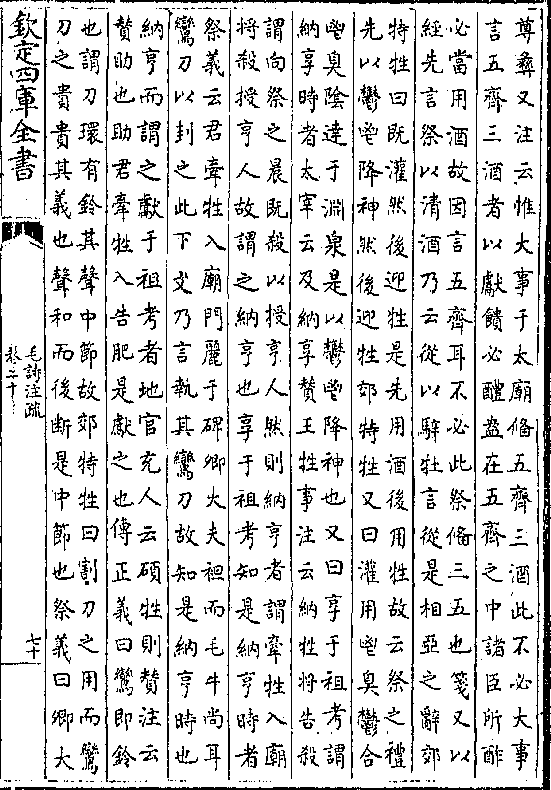 尊彝又注云惟大事于太廟備五齊三酒此不必大事
言五齊三酒者以獻饋必醴盎在五齊之中諸臣所酢
必當用酒故因言五齊耳不必此祭備三五也箋又以
經先言祭以清酒乃云從以騂牡言從是相亞之辭郊
特牲曰既灌然後迎牲是先用酒後用牲故云祭之禮
先以鬱鬯降神然後迎牲郊特牲又曰灌用鬯臭鬱合
鬯臭陰達于淵泉是以鬱鬯降神也又曰享于祖考謂
納享時者太宰云及納享贊王牲事注云納牲將告殺
謂向祭之晨既殺以授亨人然則納亨者謂牽牲入廟
將殺授亨人故謂之納亨也享于祖考知是納亨時者
祭義云君牽牲入廟門麗于碑卿大夫袒而毛牛尚耳
鸞刀以刲之此下文乃言執其鸞刀故知是納亨時也
納亨而謂之獻于祖考者地官充人云碩牲則贊注云
贊助也助君牽牲入告肥是獻之也傳正義曰鸞即鈴
也謂刀環有鈴其聲中節故郊特牲曰割刀之用而鸞
刀之貴貴其義也聲和而後斷是中節也祭義曰卿大
欽定四庫全書
毛詩注疏
卷二十
七十